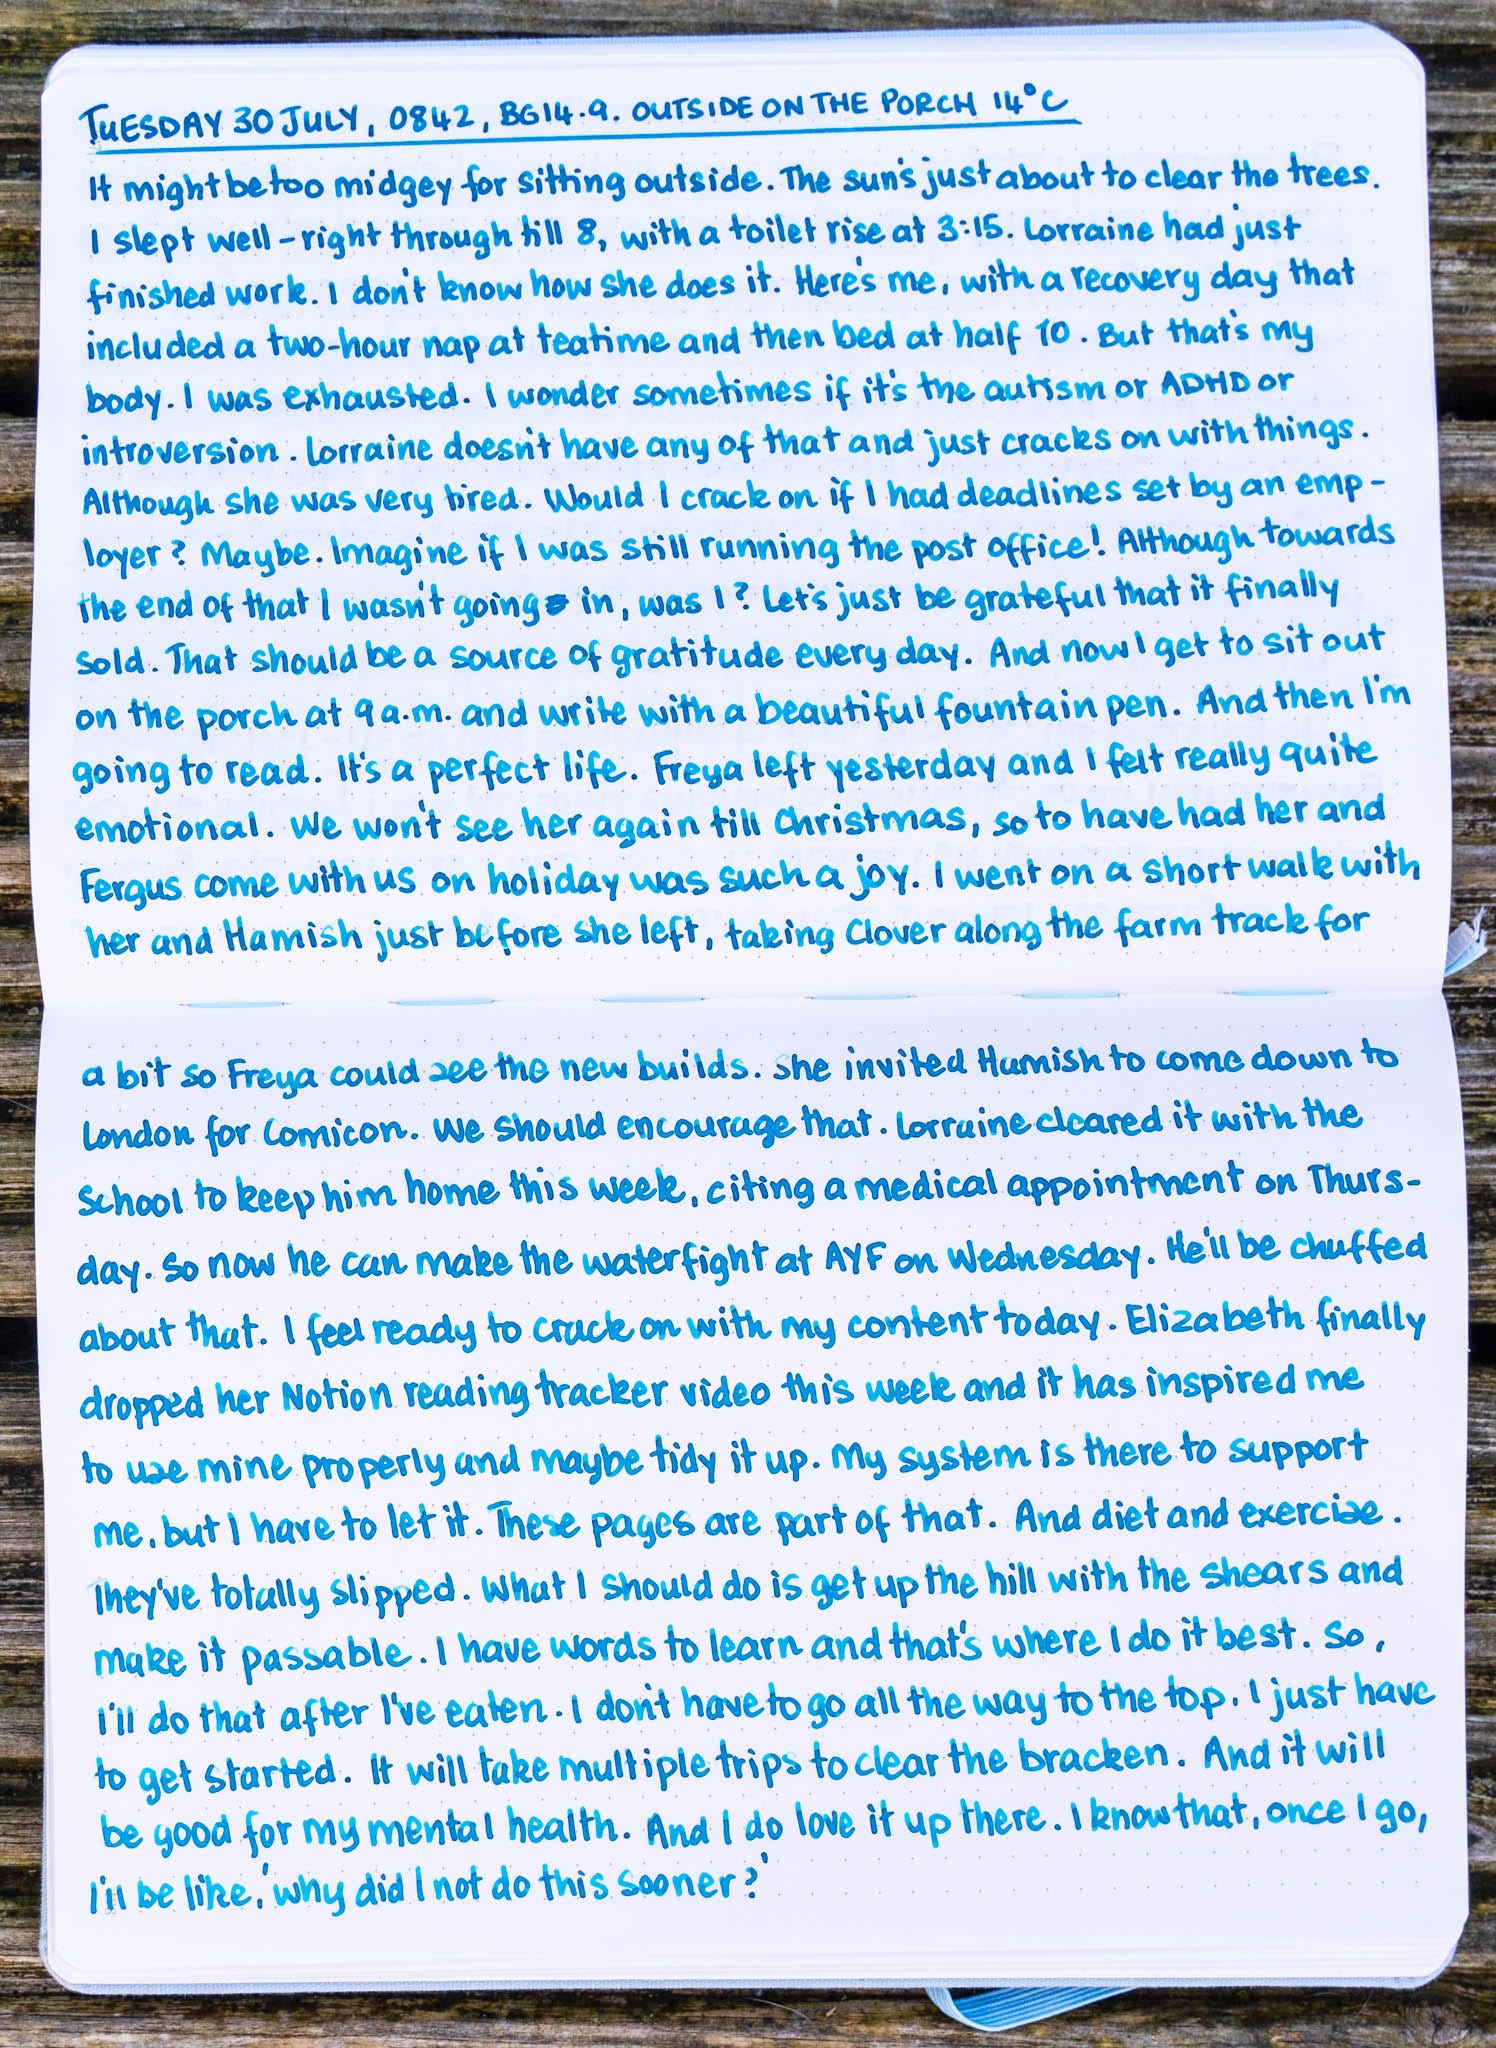 TUESDAY 30 JULY, 0842, BG14.9. OUTSIDE ON THE PORCH 14°C
It might be too midgey for sitting outside. The sun's just about to clear the trees.
I slept well – right through till 8, with a toilet rise at 3:15. Lorraine had just
finished work. I don't know how she does it. Here's me, with a recovery day that
included a two-hour nap at teatime and then bed at half 10. But that's my
body. I was exhausted. I wonder sometimes if it's the autism or ADHD or
introversion. Lorraine doesn't have any of that and just cracks on with things.
Although she was very tired. Would I crack on if I had deadlines set by an emp-
loyer? Maybe. Imagine if I was still running the post office! Although towards
the end of that I wasn't going in, was I? Let's just be grateful that it finally
sold. That should be a source of gratitude every day. And now I get to sit out
on the porch at 9 a.m. and write with a beautiful fountain pen. And then I'm
going to read. It's a perfect life. Freya left yesterday and I felt really quite
emotional. We won't see her again till Christmas, so to have had her and
Fergus come with us on holiday was such a joy. I went on a short walk with
her and Hamish just before she left, taking Clover along the farm track for
a bit so Freya could see the new builds. She invited Hamish to come down to
London for Comicon. We should encourage that. Lorraine cleared it with the
school to keep him home this week, citing a medical appointment on Thurs-
day. So now he can make the waterfight at AYF on Wednesday. He'll be chuffed
about that. I feel ready to crack on with my content today. Elizabeth finally
dropped her Notion reading tracker video this week and it has inspired me
to use mine properly and maybe tidy it up. My system is there to support
me, but I have to let it. These pages are part of that. And diet and exercise.
They've totally slipped. What I should do is get up the hill with the shears and
make it passable. I have words to learn and that's where I do it best. So,
I'll do that after I've eaten. I don't have to go all the way to the top. I just have
to get started. It will take multiple trips to clear the bracken. And it will
be good for my mental health. And I do love it up there. I know that, once I go,
I'll be like, 'why did I not do this sooner?'